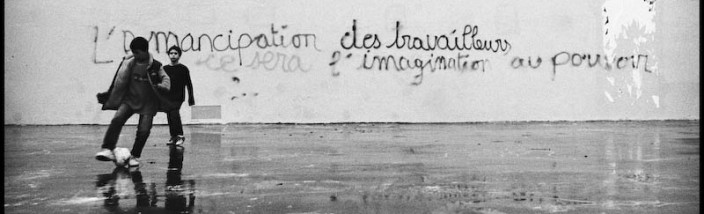 L'émancipation des travailleurs
ce sera l'imagination au pouvoir